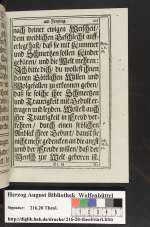 am Freytag.
nach deiner ewigen Weißheit/
dem weiblichen Geschlecht auff-
erlegt hast/ daß sie mit Kummer
und Schmertzen sollen Kinder
gebären/ und die Welt mehren:
Ich bitte dich/ du wollest ihnen
deinen Göttlichen Willen und
Wolgefallen zu erkennen geben/
daß sie solche ihre Schmertzen
und Traurigkeit mit Gedult er-
tragen und leyden: Wollest auch
ihre Traurigkeit in Freud ver-
kehren/ durch einen frölichen
Anblick ihrer Geburt/ damit sie
nicht mehr gedencken an die angst
und der Freude willen/ daß der
Mensch zur Welt geboren ist.
Herzog August Bibliothek Wolfenbüttel
Signatur: 216.20 Theol.
http://diglib.hab.de/drucke/216-20-theol/start.htm